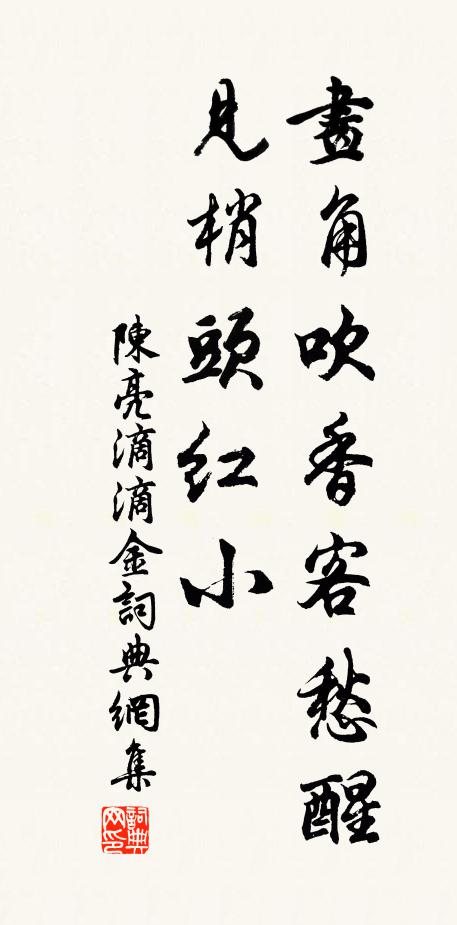 畫角吹香客愁醒
見梢頭紅小
陳亮滴滴金詞典網集
詞典
网印